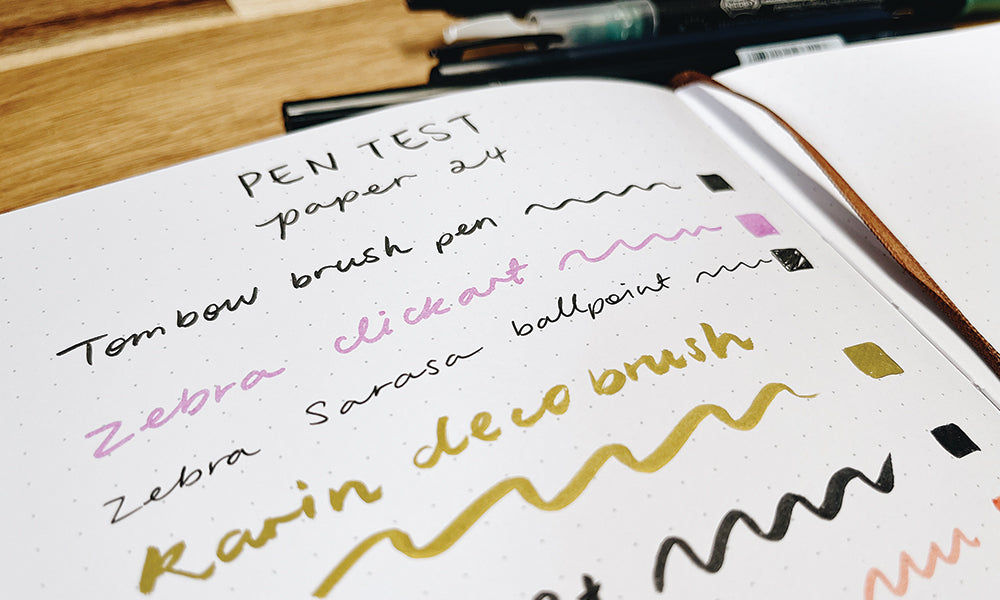 PEN TEST
paper 24
Tombow brush pen
Zebra clickart
Zebra Sarasa ballpoint
Karin decobrush